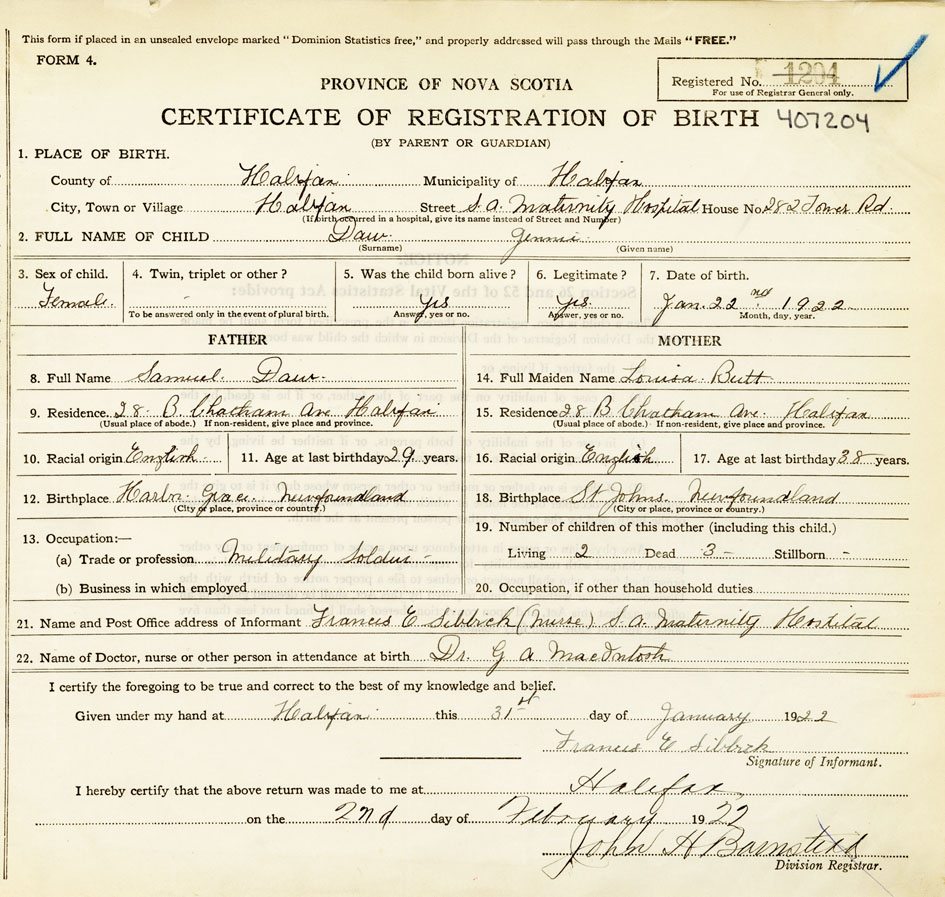 This form if placed in an unsealed envelope marked "Dominion Statistics free," and properly addressed will pass through the Mails "FREE."
FORM 4.
Registered No. 1204
For use of Registrar General only.
PROVINCE OF NOVA SCOTIA
CERTIFICATE OF REGISTRATION OF BIRTH 407204
(BY PARENT OR GUARDIAN)
1. PLACE OF BIRTH.
County of Halifax Municipality of Halifax
City, Town or Village Halifax Street S. A. Maternity Hospital House No 282 Tower Rd.
(If birth occurred in a hospital, give its name instead of Street and Number)
2. FULL NAME OF CHILD Daw. Gennie
(Surname) (Given name)
3. Sex of child. 4. Twin, triplet or other? 5. Was the child born alive? 6. Legitimate? 7. Date of birth.
Female. - Yes Yes. Jan. 22nd 1922
To be answered only in the event of plural birth. Answer, yes or no. Answer, yes or no. Month, day, year.
FATHER MOTHER
8. Full Name Samuel Daw. 14. Full Maiden Name Louisa Butt
9. Residence. 28 B. Chatham Ave Halifax 15. Residence 28 B Chatham Ave. Halifax
(Usual place of abode.) If non-resident, give place and province. (Usual place of abode.) If non-resident, give place and province.
10. Racial origin English 11. Age at last birthday 29 years. 16. Racial origin English 17. Age at last birthday 38 years.
12. Birthplace Harbor Grace. Newfoundland 18. Birthplace St Johns. Newfoundland
(City or place, province or country.) (City or place, province or country.)
13. Occupation:— 19. Number of children of this mother (including this child.)
(a) Trade or profession Military Soldier - Living 2 Dead 3 - Stillborn -
(b) Business in which employed 20. Occupation, if other than household duties
21. Name and Post Office address of Informant Francis E Sibbick (Nurse) S. A. Maternity Hospital
22. Name of Doctor, nurse or other person in attendance at birth Dr. G A MacIntosh
I certify the foregoing to be true and correct to the best of my knowledge and belief.
Given under my hand at Halifax this 31st day of January 1922
Francis E Sibbick
Signature of Informant.
I hereby certify that the above return was made to me at Halifax
on the 2nd day of February 1922
John H Barnstead
Division Registrar.